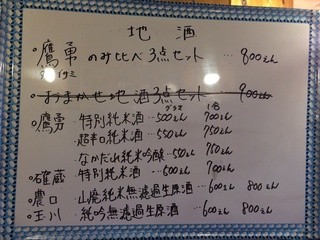 地酒
・鷹勇 のみ比べ 3点セット … 800えん
タカイサミ
・おまかせ地酒3点セット 900えん
グラス 1合
・鷹勇 特別純米酒 … 500えん 700えん
超辛口純米酒 … 550えん 750えん
なかだれ純米吟醸 … 550えん 750えん
・確蔵 特別純米酒 … 500えん 700えん
・農口 山廃純米無濾過生原酒 … 600えん 800えん
・玉川 純吟無濾過生原酒 … 600えん 800えん